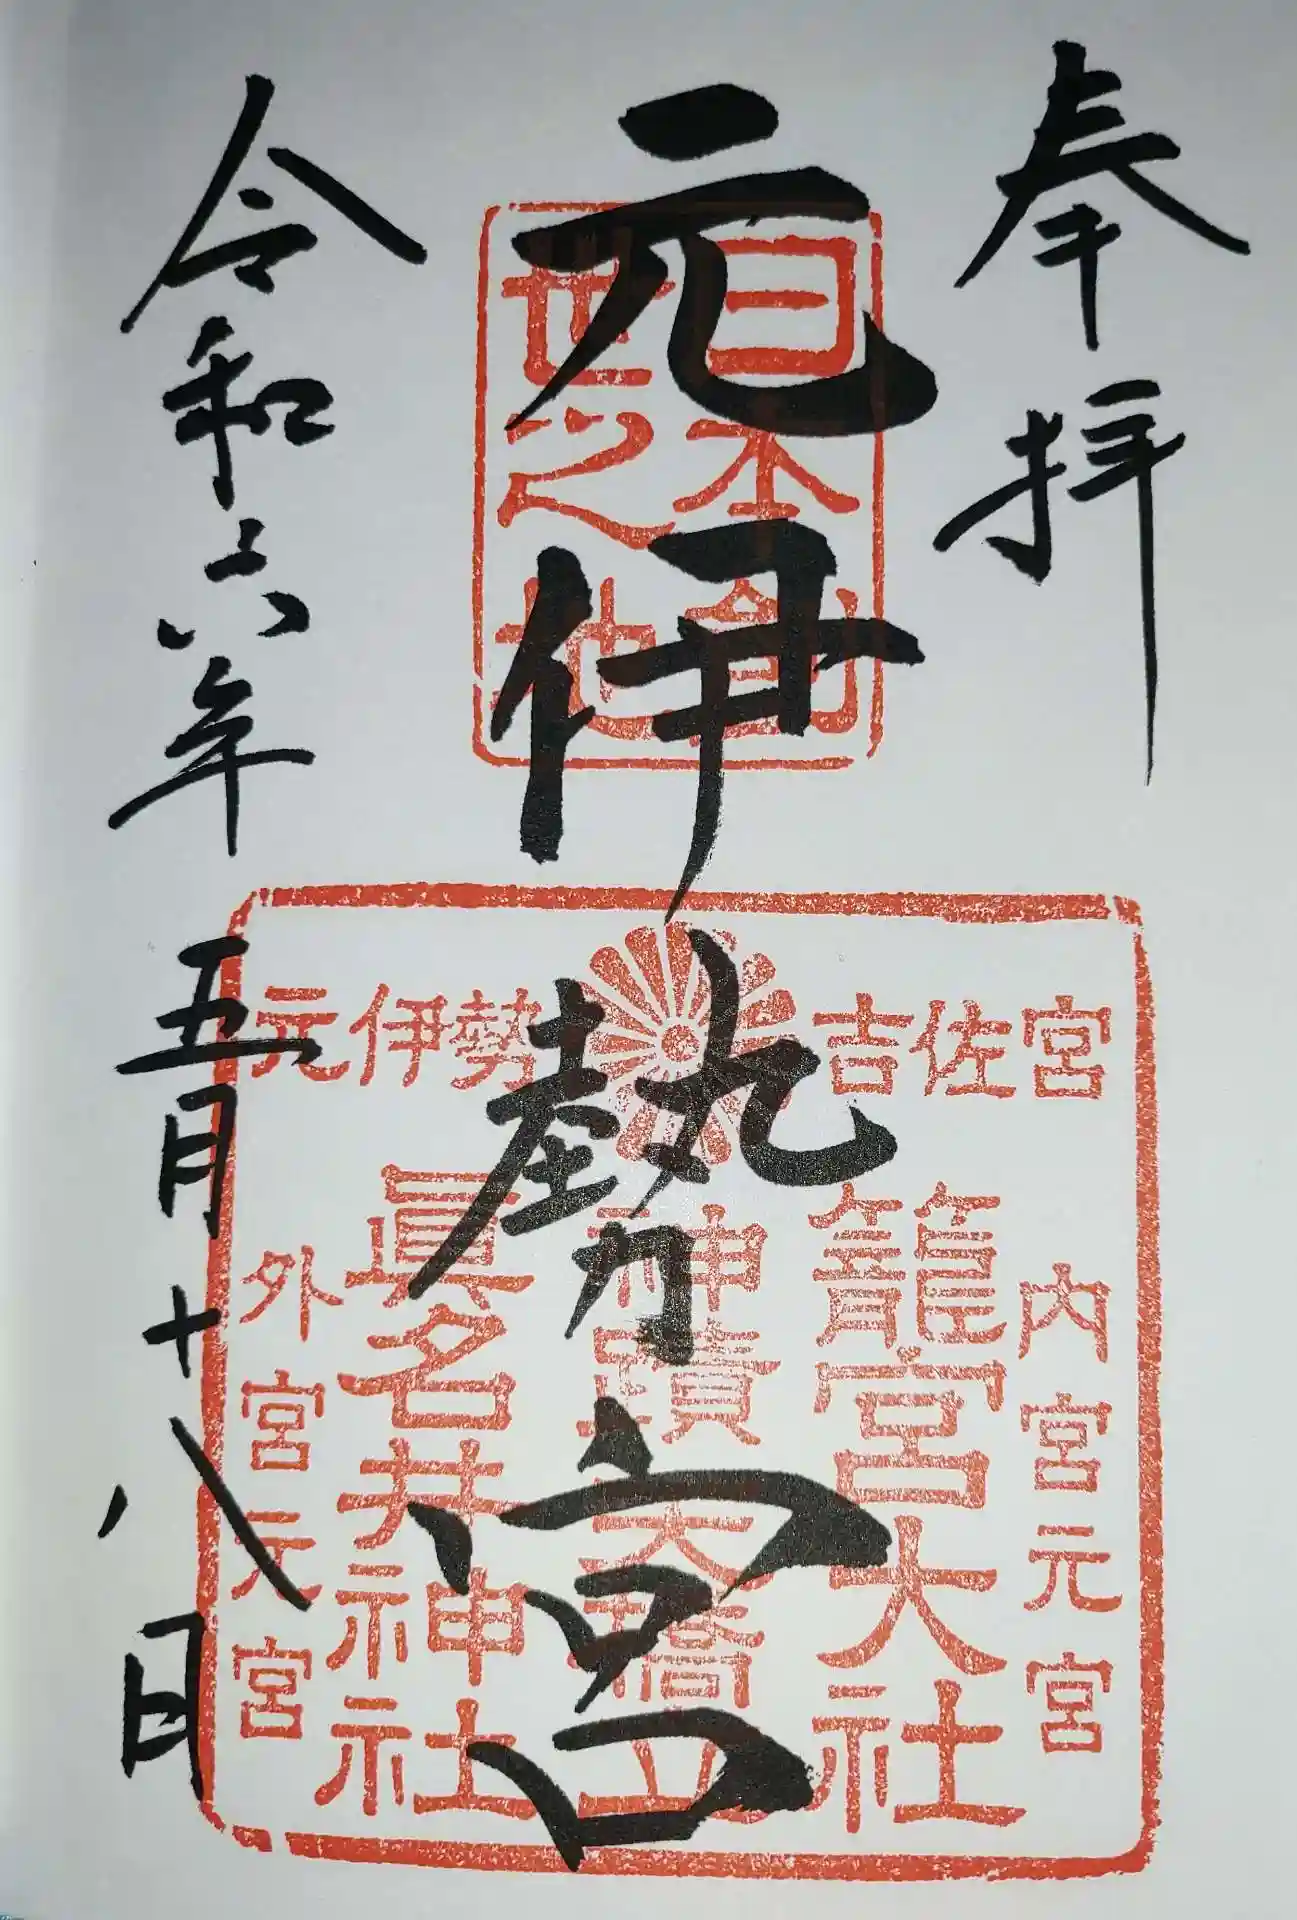 奉拝
元伊勢宮
令和六年五月十八日
日本創
世之地
元伊勢
吉佐宮
内宮元宮
籠宮大社
神蹟天橋立
眞名井神社
外宮元宮